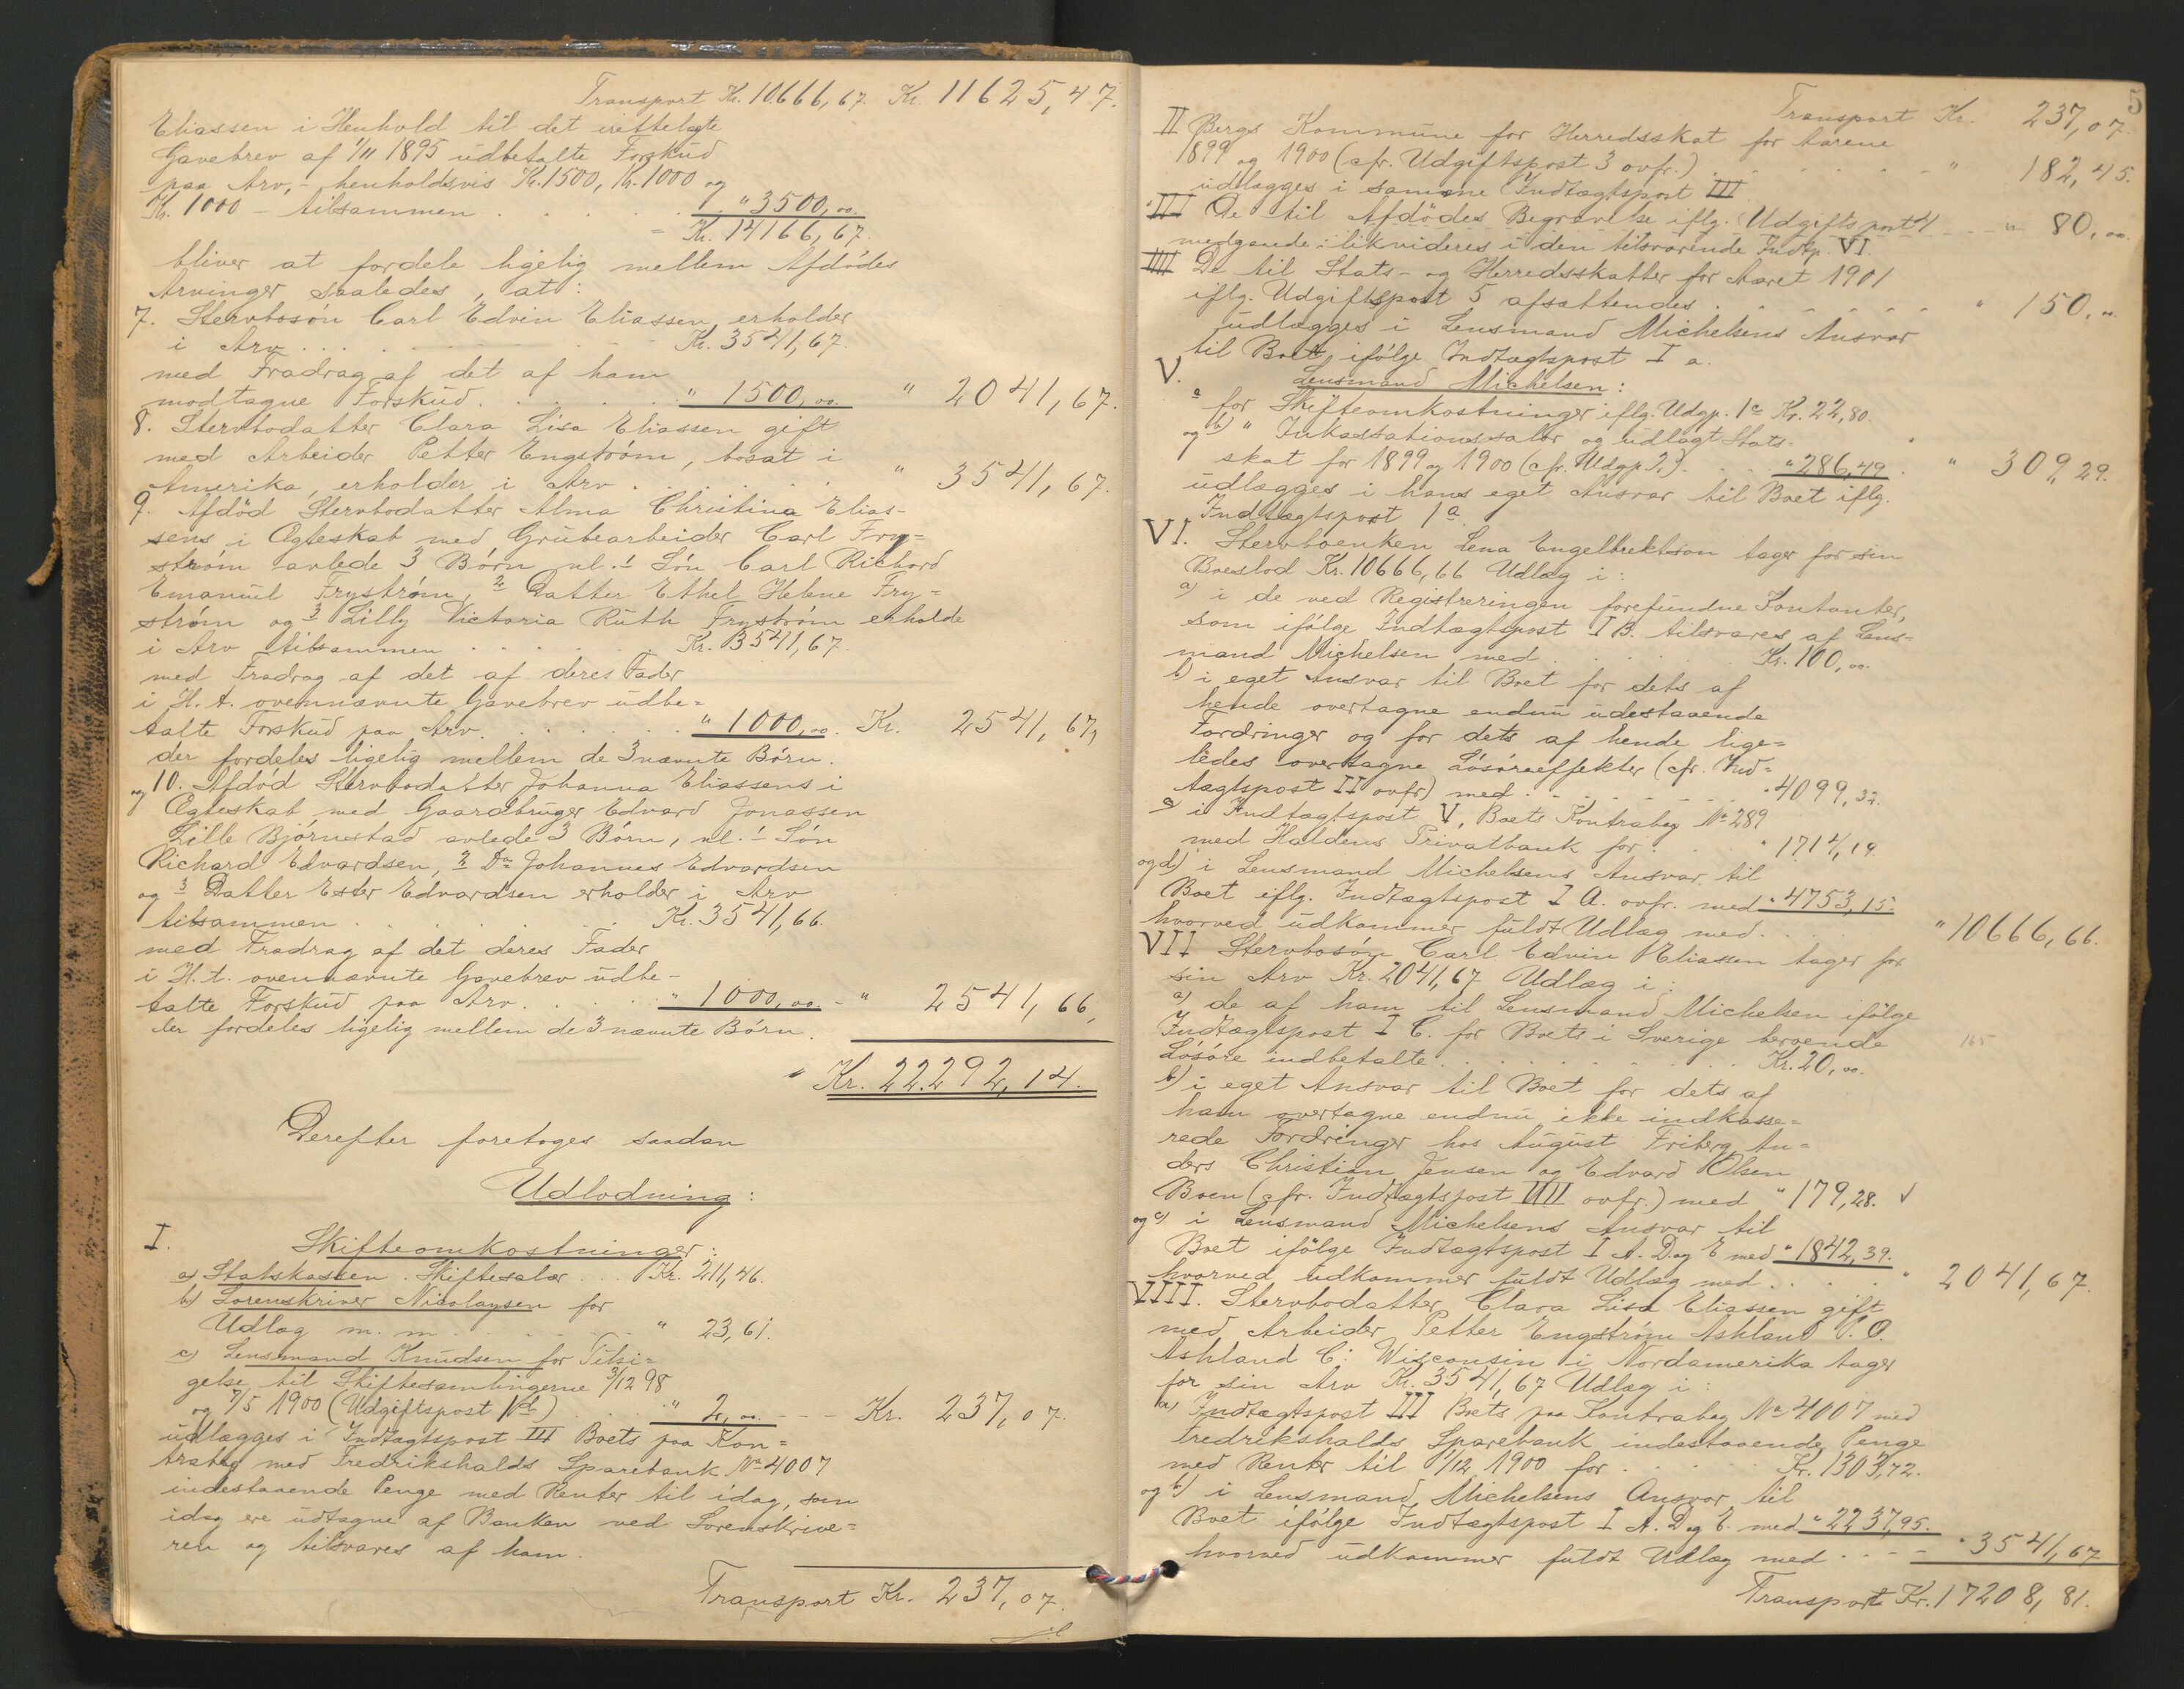 Transport Kr. 10666,67. Kr. 11625,47.
Eliassen i Henhold til det irettelagte
Gavebrev af 1/11 1895 udbetalte Forskud
paa Arv, - henholdsvis Kr. 1500, Kr. 1000 og
Kr. 1000 - tilsammen . . . . . " 3500,00.
= Kr. 14166,67.
bliver at fordele ligelig mellem Afdødes
Arvinger saaledes, at:
7. Stervbosøn Carl Edvin Eliassen erholder
i Arv . . . . Kr. 3541,67.
med Fradrag af det af ham
modtagne Forskud . . . . " 1500,00. " 2041,67.
8. Stervbodatter Clara Lisa Eliassen gift
med Arbeider Petter Engstrøm, bosat i
Amerika, erholder i Arv . . . . . " 3541,67.
9. Afdød Stervbodatter Alma Christina Elias-
sens i Ægteskab med Grubearbeider Carl Fry=
strøm avlede 3 Børn, nl. 1 Søn Carl Richard
Emanuel Frystrøm, 2 Datter Ethel Helene Fry=
strøm og 3 Lilly Victoria Ruth Frystrøm erholde
i Arv tilsammen . . . . . Kr. 3541,67.
med Fradrag af det af deres Fader
i H. t. ovennævnte Gavebrev udbe=
talte Forskud paa Arv . . . . . " 1000,00. Kr. 2541,67,
der fordeles ligelig mellem de 3 nævnte Børn.
og 10. Afdød Stervbodatter Johanna Eliassens i
Ægteskab med Gaardbruger Edvard Jonassen
Lille Bjørnestad avlede 3 Børn, nl. 1 Søn
Richard Edvardsen, 2 Do Johannes Edvardsen
og 3 Datter Ester Edvardsen erholder i Arv
tilsammen . . . . . Kr. 3541,66.
med Fradrag af det deres Fader
i H. t. ovennævnte Gavebrev udbe-
talte Forskud paa Arv . . . . . " 1000,00. - " 2541,66,
der fordeles ligelig mellem de 3 nævnte Børn.
" Kr. 22292,14.
Derefter foretoges saadan
Udlodning:
I. Skifteomkostninger:
a) Statskassen. Skiftesalær . . . Kr. 211,46.
b) Sorenskriver Nicolaysen for
Udlæg m. m. . . . . . " 23,61.
c) Lensmand Knudsen for Tilsi=
gelse til Skiftesamlingerne 3/12 98
og 7/5 1900 (Udgiftspost 1 d) . . . " 2,00. - - - Kr. 237,07.
udlægges i Indtægtspost III Boets paa Kon=
trabog med Fredrikshalds Sparebank No 4007
indestaaende Penge med Renter til idag, som
idag ere udtagne af Banken ved Sorenskrive=
ren og tilsvares af ham.
Transport Kr. 237,07.
5
Transport Kr. 237,07.
II Bergs Kommune for Herredsskat for Aarene
1899 og 1900 (cfr. Udgiftspost 3 ovfr.) . . . . . " 182,45.
udlægges i samme Indtægtspost III
III De til Afdødes Begravelse iflg. Udgiftspost 4 - - - " 80,00.
medgaaede: likvideres i den tilsvarende Indtp. VI.
IIII De til Stats- og Herredsskatter for Aaret 1901
iflg. Udgiftspost 5 afsættendes . . . . . " 150,"
udlægges i Lensmand Michelsens Ansvar
til Boet, ifølge Indtægtspost I a.
V. Lensmand Michelsen:
a for Skifteomkostninger iflg. Udgp. 1 c Kr. 22,80.
og b) " Inkassationssalær og udlagt Stats-
skat for 1899 og 1900 (cfr. Udgp. 2.) . . . " 286,49. " 309,29.
udlægges i hans eget Ansvar til Boet iflg.
Indtægtspost 1 a.
VI. Stervboenken Lena Engelbrektson tager for sin
Boeslod Kr. 10666,66 Udlæg i:
a) i de ved Registreringen forefundne Kontanter,
som ifølge Indtægtspost I B. tilsvares af Lens-
mand Michelsen med . . . . . Kr. 100,00.
b) i eget Ansvar til Boet for dets af
hende overtagne endnu udestaaende
Fordringer og for dets af hende lige=
ledes overtagne Løsøreeffekter (cfr. Ind=
tægtspost II ovfr) med . . . . . " 4099,32.
c) i Indtægtspost V, Boets Kontrabog No 289
med Haldens Privatbank for . . . . " 1714,19.
og d) i Lensmand Michelsens Ansvar til
Boet iflg. Indtægtspost I A. ovfr. med " 4753,15.
hvorved udkommer fuldt Udlæg med . . . . " 10666,66.
VII Stervbosøn Carl Edvin Eliassen tager for
sin Arv Kr. 2041,67 Udlæg i:
a) de af ham til Lensmand Michelsen ifølge
Indtægtspost I C. for Boets i Sverige beroende
Løsøre indbetalte . . . . . Kr. 20,00.
b) i eget Ansvar til Boet for dets af
ham overtagne endnu ikke indkasse=
rede Fordringer hos August Friberg, An=
ders Christian Jensen og Edvard Olsen
Boen (cfr. Indtægtspost IIII ovfr.) med " 179,28. √
og c) i Lensmand Michelsens Ansvar til
Boet ifølge Indtægtspost I A. D. og E med " 1842,39.
hvorved udkommer fuldt Udlæg med . . . " 2041,67.
VIII. Stervbodatter Clara Lisa Eliassen gift
med Arbeider Petter Engstrøm Ashland P. O.
Ashland C: Wisconsin i Nordamerika tager
for sin Arv Kr. 3541,67 Udlæg i:
a) Indtægtspost III Boets paa Kontrabog No 4007 med
Fredrikshalds Sparebank indestaaende Penge
med Renter til 1/12 1900 for . . . . . Kr. 1303,72.
og b) i Lensmand Michelsens Ansvar til
Boet ifølge Indtægtspost I A. D. og E. med " 2237,95.
hvorved udkommer fuldt Udlæg med . . . . " 3541,67
Transport Kr. 17208,81.